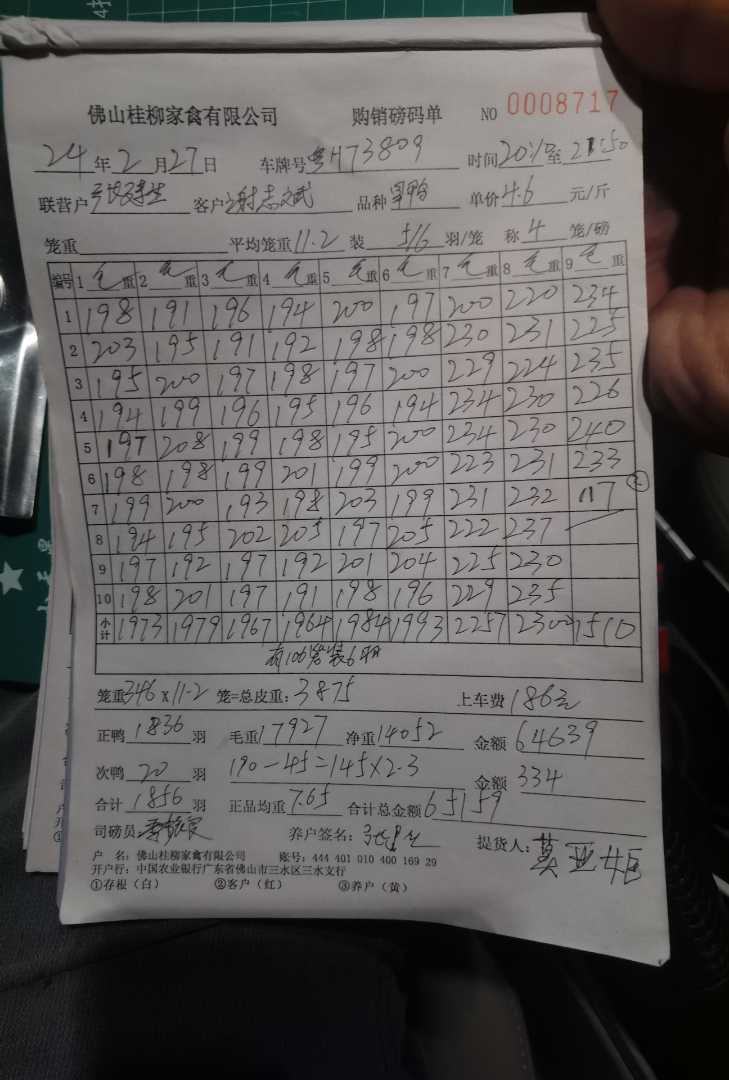 佛山桂柳家禽有限公司 购销磅码单 NO 0008717
24年2月27日 车牌号粤H73809 时间20:10至21:50
联营户 客户谢志斌 品种 单价4.6元/斤
笼重 平均笼重11.2 装5/6羽/笼 称4笼/磅
编号 1毛重 2毛重 3毛重 4毛重 5毛重 6毛重 7毛重 8毛重 9毛重
1 198 191 196 194 200 197 200 220 234
2 203 195 191 192 198 198 230 231 225
3 195 200 197 198 197 200 229 224 235
4 194 199 196 195 196 194 234 230 226
5 197 208 199 198 195 200 234 230 240
6 198 198 199 201 199 200 223 231 233
7 199 200 193 198 203 199 231 232 117 ②
8 194 195 202 205 197 205 222 237
9 197 192 197 192 201 204 225 230
10 198 201 197 191 198 196 229 235
小计 1973 1979 1967 1964 1984 1993 2257 2300 1510
有100笼装6只
笼重346×11.2笼=总皮重:3875 上车费186元
正鸭1836羽 毛重17927 净重14052 金额64639
次鸭20羽 190-45=145×2.3 金额334
合计1856羽 正品均重7.65 合计总金额65159
司磅员: 养户签名: 提货人:莫亚
户 名:佛山桂柳家禽有限公司 账号:444 401 010 400 169 29
开户行:中国农业银行广东省佛山市三水区三水支行
①存根(白) ②客户(红) ③养户(黄)